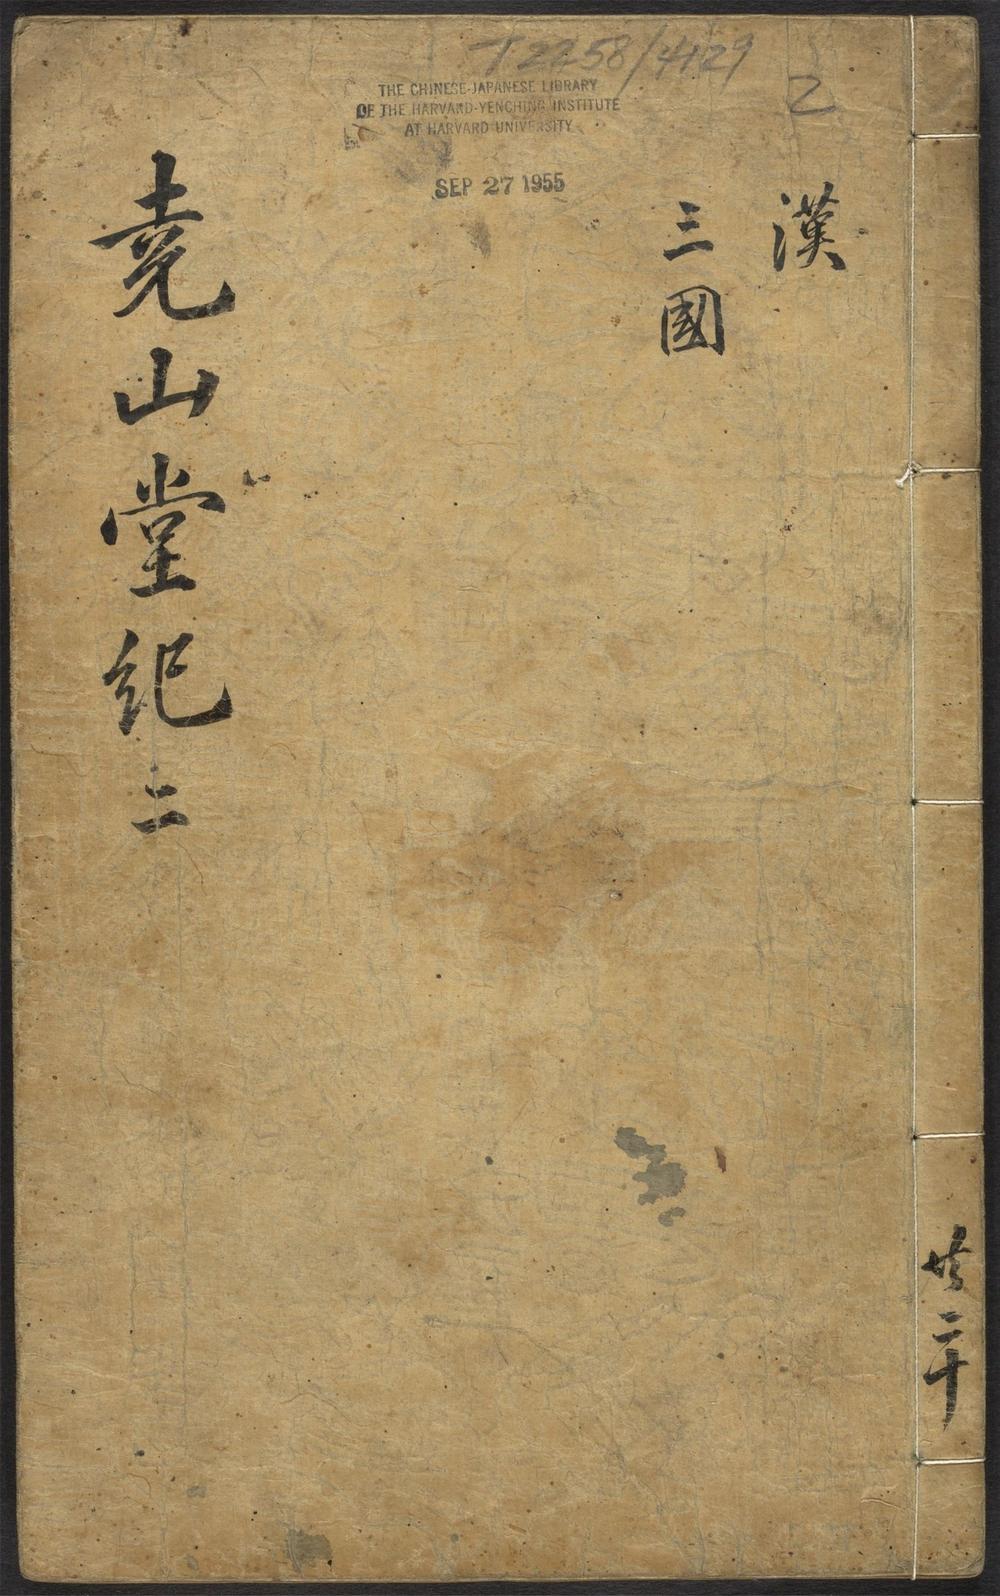 T2258/4129
2
THE CHINESE-JAPANESE LIBRARY
OF THE HARVARD-YENCHING INSTITUTE
AT HARVARD UNIVERSITY
SEP 27 1955
漢
三國
堯山堂紀二
共二十